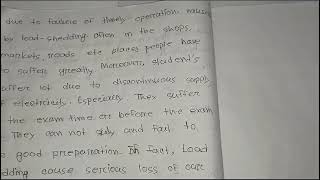 due to failure of timely operation. caused
by load-shedding often in the shops,
markets, roads etc places people have
to suffer greatly. Moreover, student's
suffer lot due to discontinuous supply
of electricity. Especially They suffer
the exam time or before the exam
They can not study and fail to
good preparation In fact, Load
dding cause serious loss of our